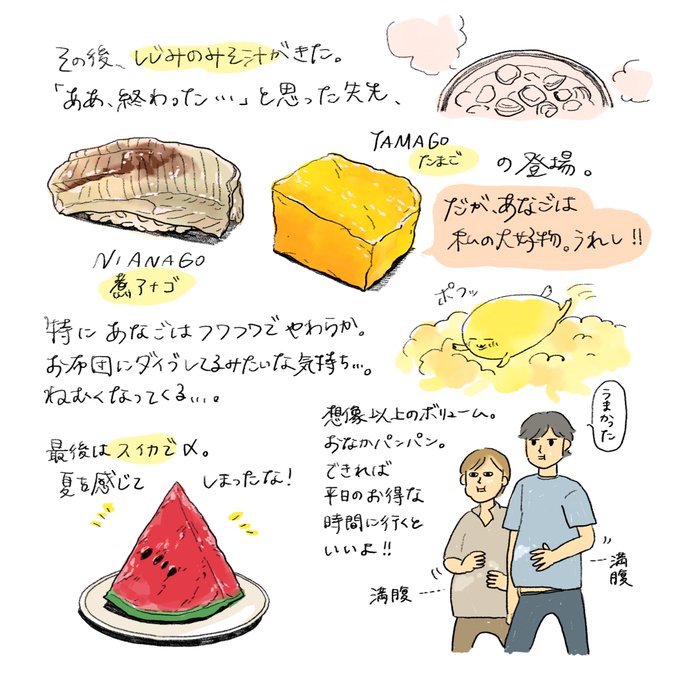 その後、しじみのみそ汁がきた。
「ああ、終わった…」と思った矢先、
NIANAGO
煮アナゴ
TAMAGO
たまご
の登場。
だが、あなごは
私の大好物。うれし!!
特に あなごはフワフワで やわらか。
お布団にダイブしてるみたいな気持ち…。
ねむくなってくる…。
ポフッ
最後は スイカで〆。
夏を感じて しまったな!
想像以上のボリューム。
おなかパンパン。
できれば
平日のお得な
時間に行くと
いいよ!!
うまかった
満腹
満腹